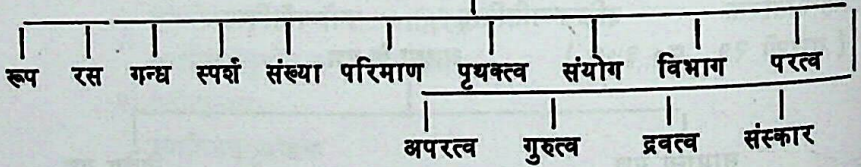 रूप रस गन्ध स्पर्श संख्या परिमाण पृथक्त्व संयोग विभाग परत्व
अपरत्व गुरुत्व द्रवत्व संस्कार